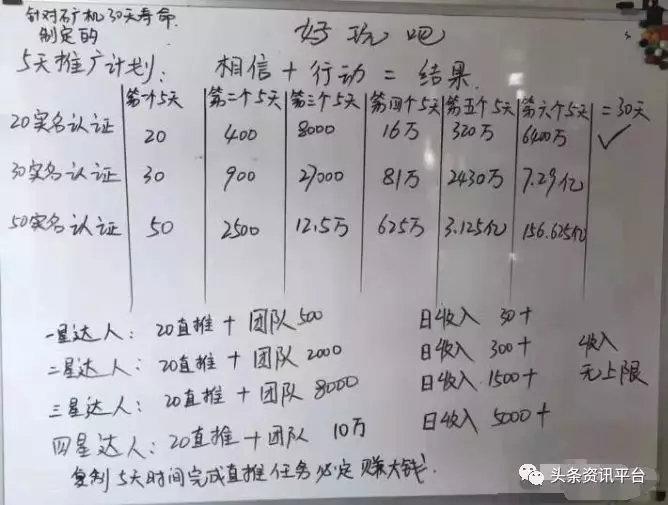 针对矿机30天寿命
制定的
好玩吧
5天推广计划: 相信 + 行动 = 结果.
第一个5天 第二个5天 第三个5天 第四个5天 第五个5天 第六个5天 =30天
20实名认证 20 400 8000 16万 320万 6400万 ✓
30实名认证 30 900 27000 81万 2430万 7.29亿
50实名认证 50 2500 12.5万 625万 3.125亿 156.625亿
一星达人: 20直推 + 团队 500 日收入 30+
二星达人: 20直推 + 团队 2000 日收入 300+ 收入
三星达人: 20直推 + 团队 8000 日收入 1500+ 无上限
四星达人: 20直推 + 团队 10万 日收入 5000+
复制 5天时间完成直推任务必定赚大钱.
头条资讯平台